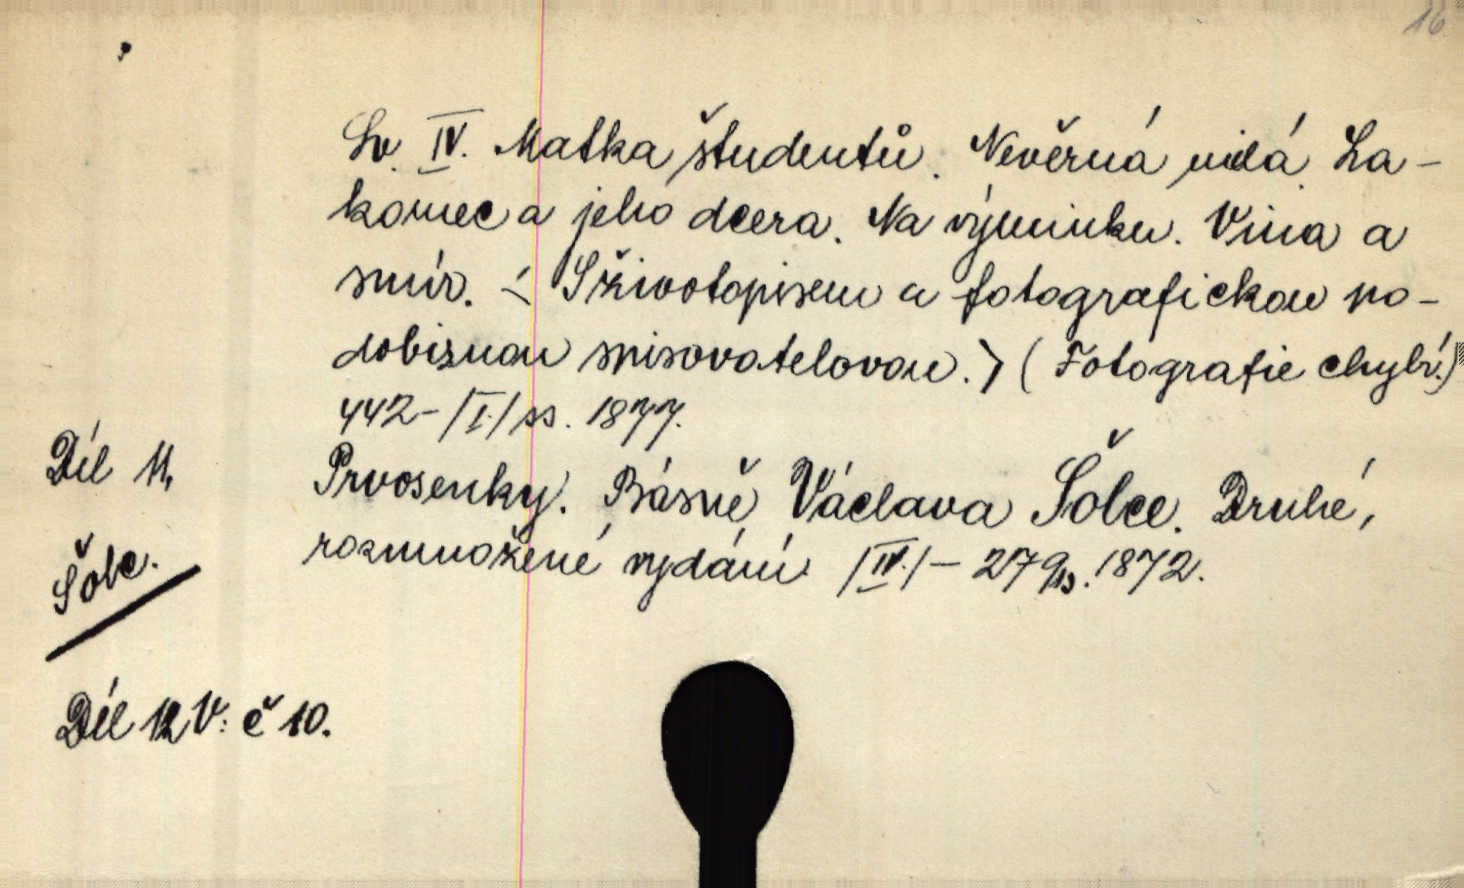 16
Sv. IV. Matka študentů. Nevěrná milá. La-
komec a jeho dcera. Na výminku. Vina a
smír. < S životopisem a fotografickou po-
dobiznou spisovatelovou. > (Fotografie chybí.)
442-|I|ss. 1877.
Díl 11, Prvosenky. Básně Václava Šolce. Druhé,
Šolc. rozmnožené vydání |IV.| - 279 ss. 1872.
Díl 12 V: č 10.